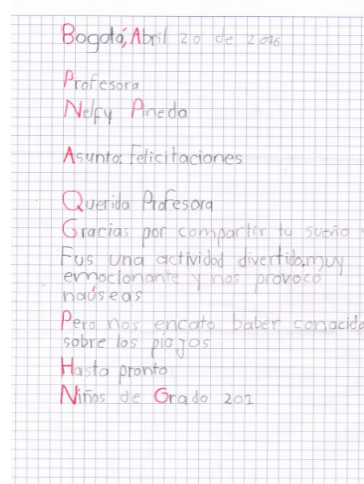 Bogotá, Abril 20 de 2016
Profesora
Nelfy Pineda
Asunto: Felicitaciones
Querida Profesora
Gracias por compartir tu sueño y
Fus una actividad divertida, muy
emocionante y nos provoco
naúseas
Pero nos encato baber conocido
sobre los piojos
Hasta pronto
Niños de Grado 202